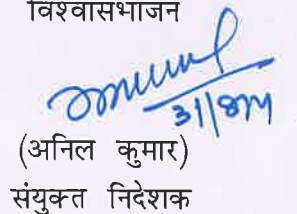 विश्वासभाजन
(अनिल कुमार)
संयुक्त निदेशक